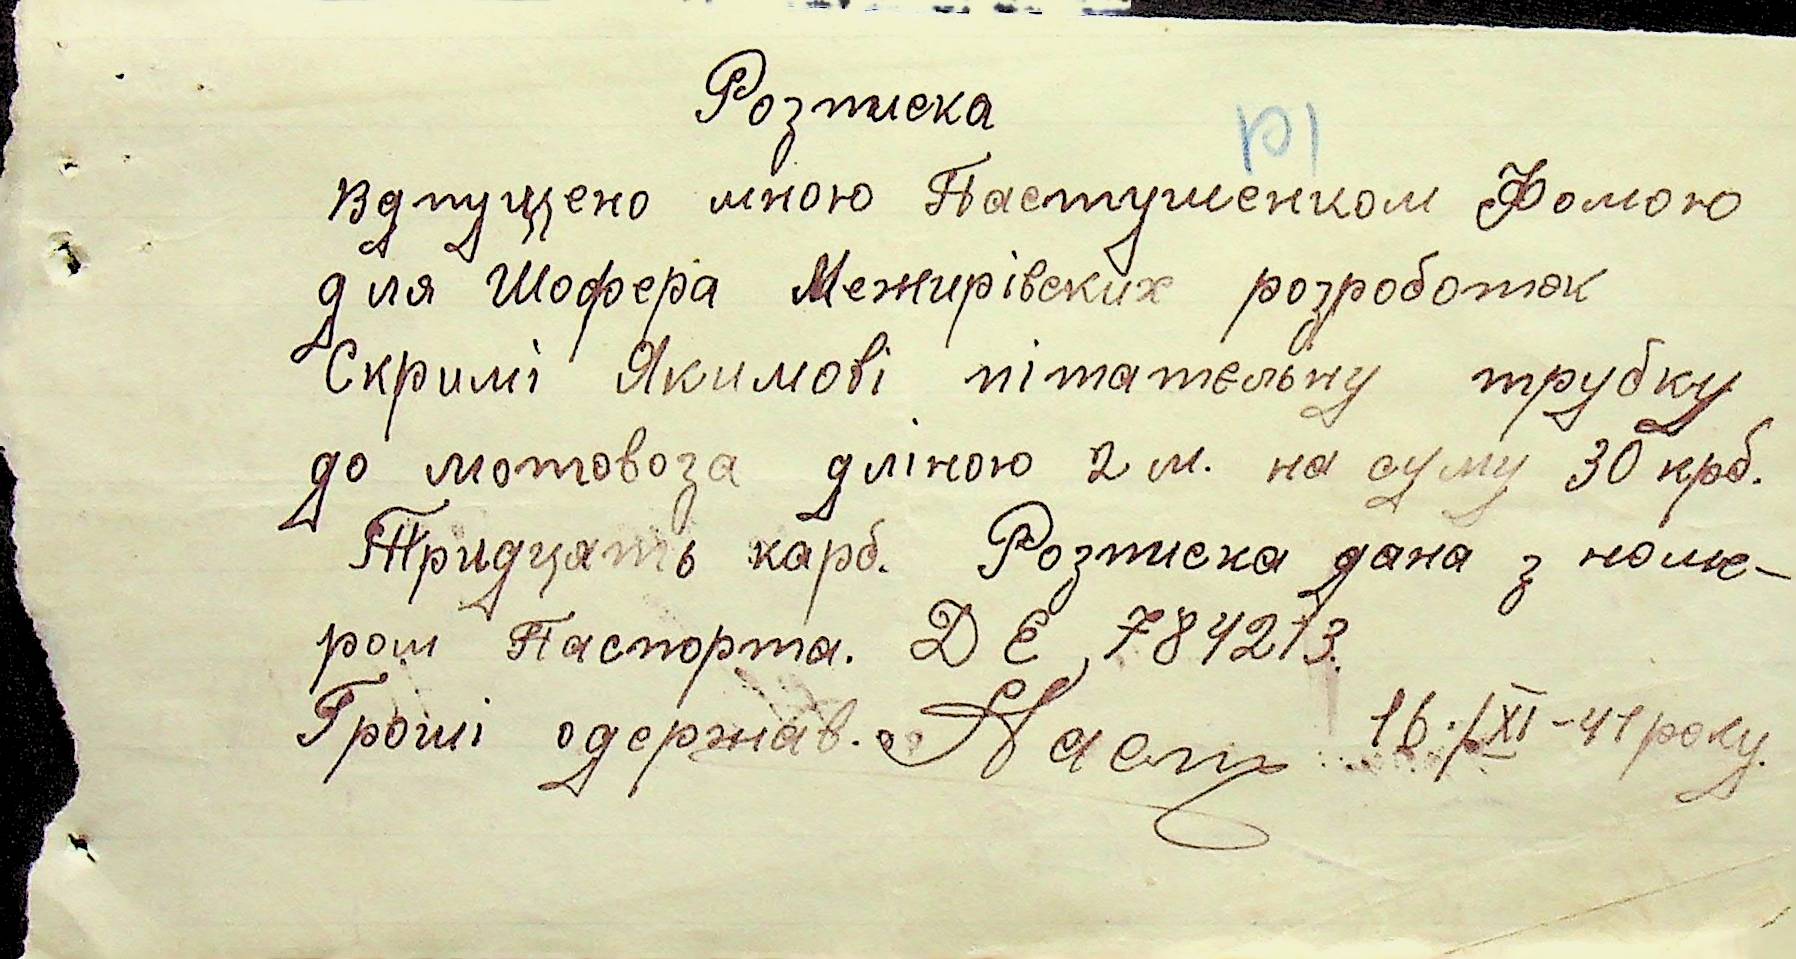 Розписка
Вдпущено мною Пастушенком Фомою
для Шофера Межирівских розроботок
Скримі Якимові пітательну трубку
до мотовоза дліною 2 м. на суму 30 крб.
Тридцять карб. Розписка дана з номе-
ром Паспорта. Д Е 784213.
Гроші одержав. Паст 16./XI-41 року.